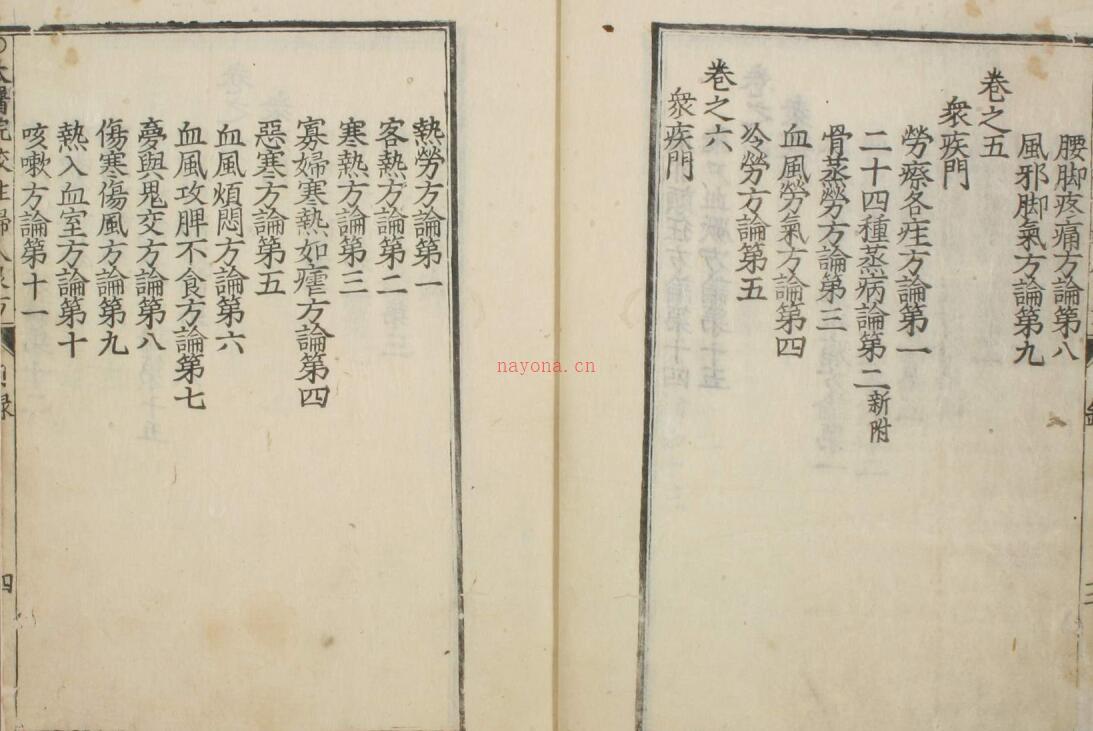 腰脚疼痛方論第八
風邪脚氣方論第九
卷之五
衆疾門
勞瘵各疰方論第一
二十四種蒸病論第二新附
骨蒸勞方論第三
血風勞氣方論第四
冷勞方論第五
卷之六
衆疾門
熱勞方論第一
客熱方論第二
寒熱方論第三
寡婦寒熱如瘧方論第四
惡寒方論第五
血風煩悶方論第六
血風攻脾不食方論第七
夣與鬼交方論第八
傷寒傷風方論第九
熱入血室方論第十
咳嗽方論第十一
四
nayona.cn